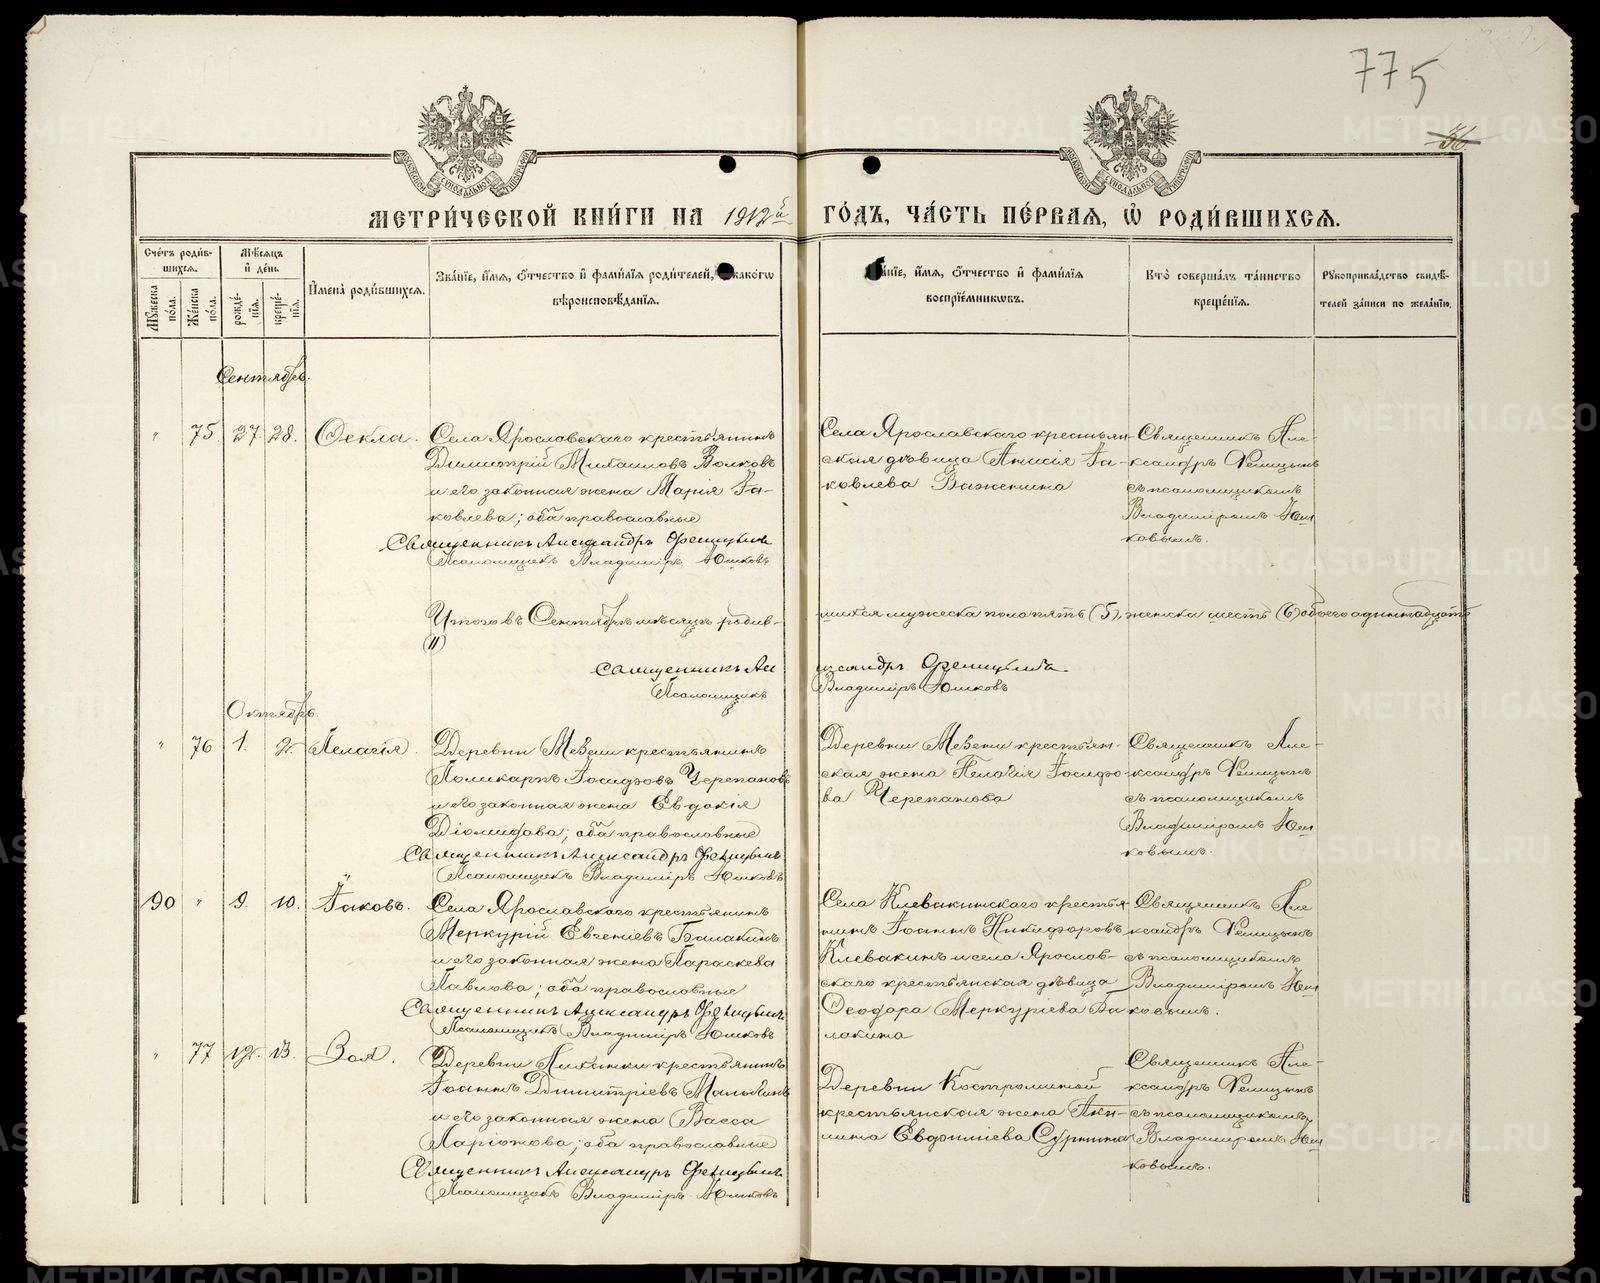 775
36
МЕТРИ́ЧЕСКОЙ КНИ́ГИ НА 1912й ГО́ДЪ, ЧА́СТЬ ПЕ́РВАЯ, Ѡ҆ РОДИ́ВШИХСЯ.
Сче́тъ роди́в-
шихся.
Мѣ́сяцъ
и҆ де́нь
Мꙋ́жеска
по́ла.
Же́нска
по́ла.
рожде́-
нїя.
креще́-
нїя.
И҆мена̀ роди́вшихся.
Зва́нїе, и҆́мя, ѻ҆́тчество и҆ фами́лїя роди́телей, и҆ како́гѡ
вѣроисповѣ́данїя.
Зва́нїе, и҆́мя, ѻ҆́тчество и҆ фами́лїя
воспрїе́мникѡвъ.
Кто̀ соверша́лъ та́инство
креще́нїя.
Рꙋкоприкла́дство свидѣ́-
телей за́писи по жела́нїю.
Сентябрь.
" 75. 27. 28. Ѳекла.
Села Ярославскаго крестьянинъ
Димитрій Михаиловъ Волковъ
и его законная жена Марія Іа-
ковлева; оба православные
Священникъ Александръ Феницынъ
Псаломщикъ Владиміръ Юшковъ
Села Ярославскаго крестьян-
ская дѣвица Анисія Іа-
ковлева Важенина
Священникъ Але-
ксандръ Феницынъ
съ псаломщикомъ
Владиміромъ Юш-
ковымъ.
Итого въ Сентябрѣ мѣсяцѣ родив-
шихся мужеска пола пять (5), женска шесть (6) обоего одиннадцать
(11)
Священникъ Александръ Феницынъ
Псаломщикъ Владиміръ Юшковъ
Октябрь.
" 76 1. 2. Пелагія.
Деревни Мезени крестьянинъ
Поликарпъ Іосифовъ Черепановъ
и его законная жена Евдокія
Діомидова; оба православные
Священникъ Александръ Феницынъ
Псаломщикъ Владиміръ Юшковъ
Деревни Мезени крестьян-
ская жена Пелагія Іосифо-
ва Черепанова
Священникъ Але-
ксандръ Феницынъ
съ псаломщикомъ
Владиміромъ Юш-
ковымъ.
90 " 9. 10. Іаковъ.
Села Ярославскаго крестьянинъ
Меркурій Евгеніевъ Балакинъ
и его законная жена Параскева
Павлова; оба православные
Священникъ Александръ Феницынъ
Псаломщикъ Владиміръ Юшковъ
Села Клевакинскаго крестья-
нинъ Іоаннъ Никифоровъ
Клевакинъ и села Ярослав-
скаго крестьянская дѣвица
Ѳеодора Меркуріева Ба-
лакина
Священникъ Але-
ксандръ Феницынъ
съ псаломщикомъ
Владиміромъ Юш-
ковымъ.
" 77 12. 13. Зоя.
Деревни крестьянинъ
Іоаннъ Димитріевъ Малыгинъ
и его законная жена Васса
Ларіонова; оба православные
Священникъ Александръ Феницынъ
Псаломщикъ Владиміръ Юшковъ
Деревни Костроминой
крестьянская жена Аки-
лина Евдокіева Сурнина
Священникъ Але-
ксандръ Феницынъ
съ псаломщикомъ
Владиміромъ Юш-
ковымъ.